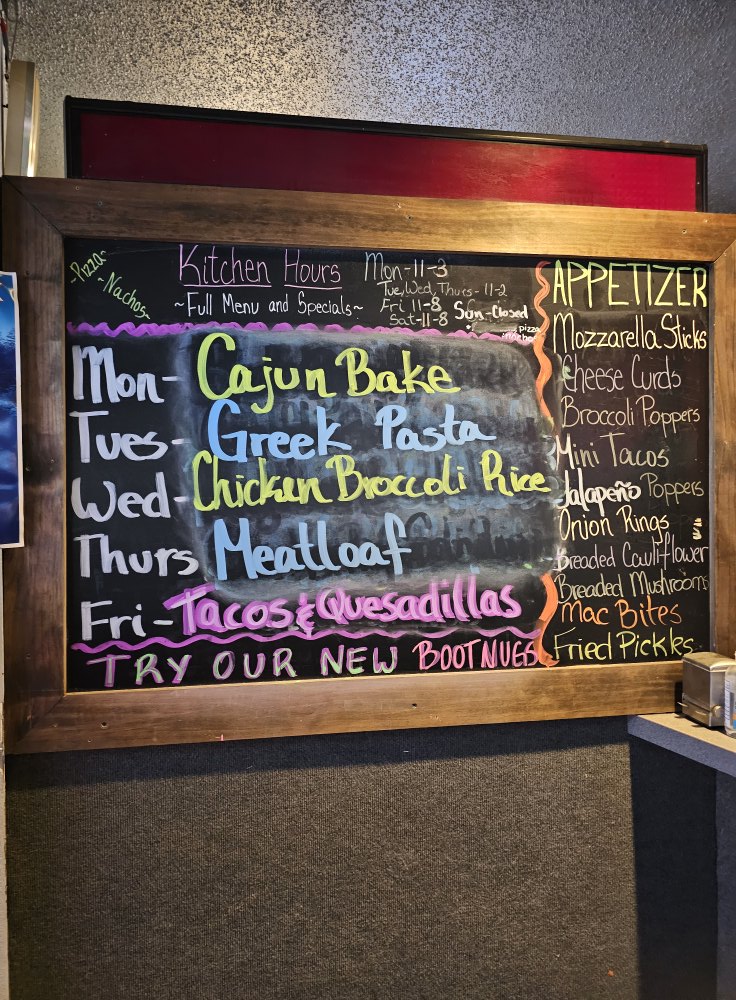 ~Pizza~
~Nachos~
Kitchen Hours
~Full Menu and Specials~
Mon-11-3
Tue, Wed, Thurs-11-2
Fri 11-8
Sat-11-8
Sun-Closed
pizza
Mon- Cajun Bake
Tues- Greek Pasta
Wed- Chicken Broccoli Rice
Thurs Meatloaf
Fri- Tacos & Quesadillas
TRY OUR NEW BOOTNUGS
APPETIZER
Mozzarella Sticks
Cheese Curds
Broccoli Poppers
Mini Tacos
Jalapeño Poppers
Onion Rings
Breaded Cauliflower
Breaded Mushrooms
Mac Bites
Fried Pickles